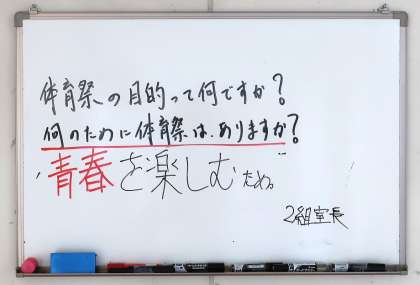 体育祭の目的って何ですか?
何のために体育祭は、ありますか?
青春を楽しむため。
2組室長